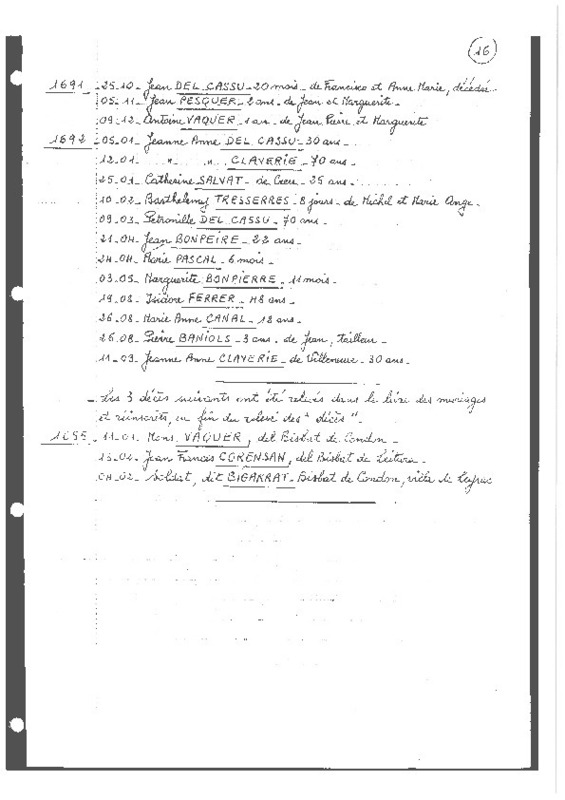 16
1691 - 25.10 - Jean DEL CASSU - 20 mois - de Francisco et Anne Marie, décédée
05.11 - Jean PESQUER - 2 ans - de Jean et Marguerite -
09.12 - Antoine VAQUER - 1 an - de Jean Pierre et Marguerite
1692 - 05.01 - Jeanne Anne DEL CASSU - 30 ans -
12.01 " " CLAVERIE - 70 ans -
25.01 - Catherine SALVAT - de - 25 ans -
10.02 - Barthelemy TRESSERRES - 8 jours - de Michel et Marie Ange -
09.03 - Petronille DEL CASSU - 70 ans -
21.04 - Jean BONPEIRE - 22 ans -
24.04 - Marie PASCAL - 6 mois -
03.05 - Marguerite BONPIERRE - 11 mois -
19.08 - Isidore FERRER - 48 ans -
26.08 - Marie Anne CANAL - 18 ans -
26.08 - Pierre BANIOLS - 3 ans - de Jean, tailleur -
11.09 - Jeanne Anne CLAVERIE - de Villeneuve - 30 ans -
- Les 3 décès suivants ont été relevés dans le livre des mariages
et réinscrits, en fin du relevé des "décès" -
11.01 - Mons. VAQUER, del Bisbat de Condon -
Jean Francis CORENSAN, del Bisbat de Leitura -
02 - Soldat, dit BIGARRAT - Bisbat de Condon, villa de